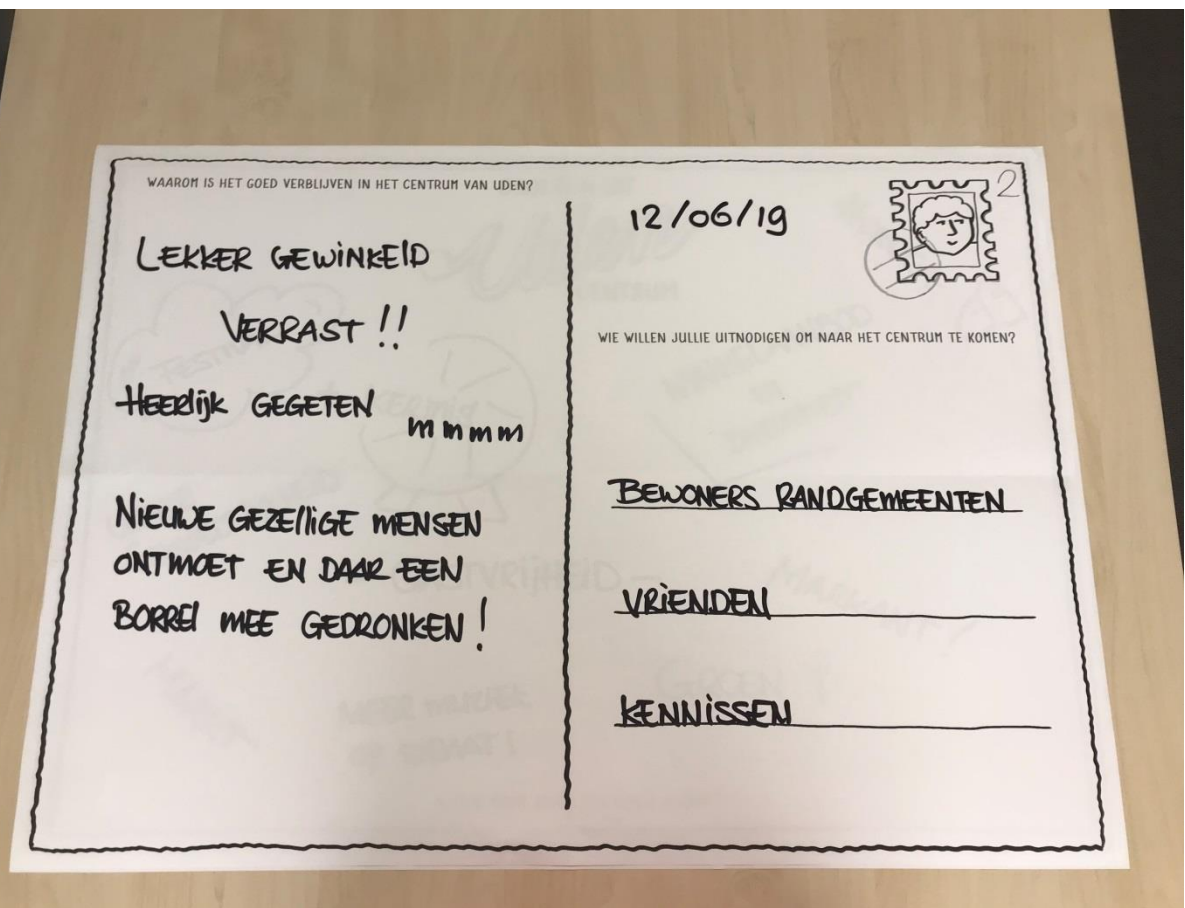 WAAROM IS HET GOED VERBLIJVEN IN HET CENTRUM VAN UDEN?
LEKKER GEWINKELD
VERRAST !!
HEERLIJK GEGETEN mmmm
NIEUWE GEZELLIGE MENSEN
ONTMOET EN DAAR EEN
BORREL MEE GEDRONKEN !
12/06/19
2
WIE WILLEN JULLIE UITNODIGEN OM NAAR HET CENTRUM TE KOMEN?
BEWONERS RANDGEMEENTEN
VRIENDEN
KENNISSEN